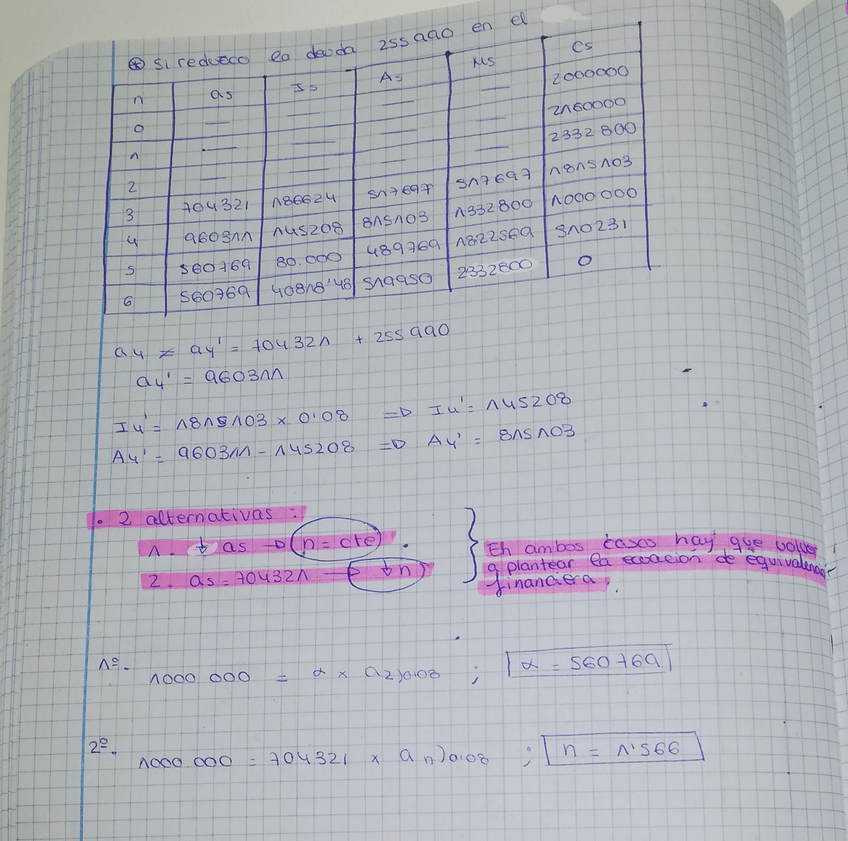 ⊛ Si reduzco la deuda 255 990 en el
n as Is As Ms Cs
0 — — — — 2000000
1 — — — — 2160000
2 — — — — 2332800
3 704321 186624 517697 517697 1815103
4 960311 145208 815103 1332800 1000000
5 560769 80.000 489769 1822569 510231
6 560769 40818'48 519950 2332800 0
a4 ≠ a4' = 704321 + 255990
a4' = 960311
I4' = 1815103 x 0'08 => I4' = 145208
A4' = 960311 - 145208 => A4' = 815103
• 2 alternativas:
1. ↓ as → (n = cte).
2. as = 704321 → ↓n)
En ambos casos hay que volver
a plantear la ecuación de equivalencia
financiera.
1º- 1000 000 = α x a2)0.08 ; α = 560769
2º- 1000 000 = 704321 x an)0.08 ; n = 1'566